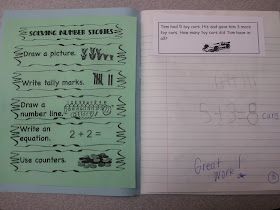 SOLVING NUMBER STORIES
Draw a picture.
Write tally marks.
Draw a
number line.
Write an
equation.
2 + 2 =
Use counters.
Tom had 5 toy cars. His dad gave him 3 more
toy cars. How many toy cars did Tom have in
all?
5+3=8 cars
Great
Work!